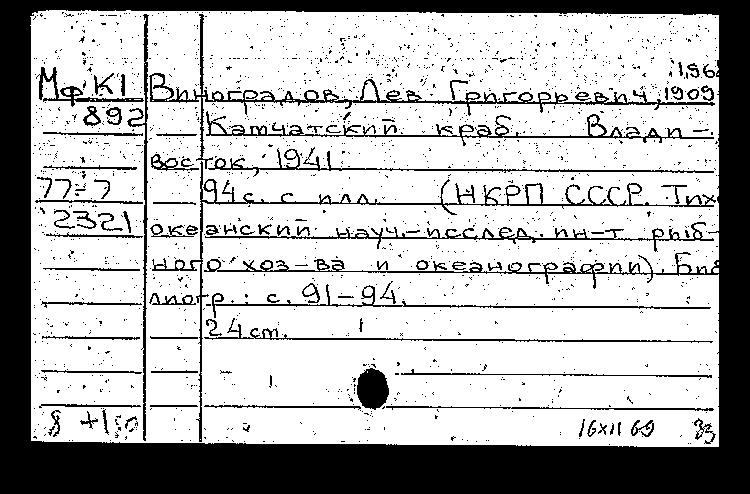 196
Мф К1 Виноградов, Лев Григорьевич, 1909-
892 Камчатский краб. Влади-
восток, 1941.
77-7 94 с. с илл. (НКРП СССР. Тих
2321 океанский науч.-исслед. ин-т рыб-
ного хоз-ва и океанографии). Биб
лиогр.: с. 91-94.
24 cm.
8 +150 16 XII 69 33